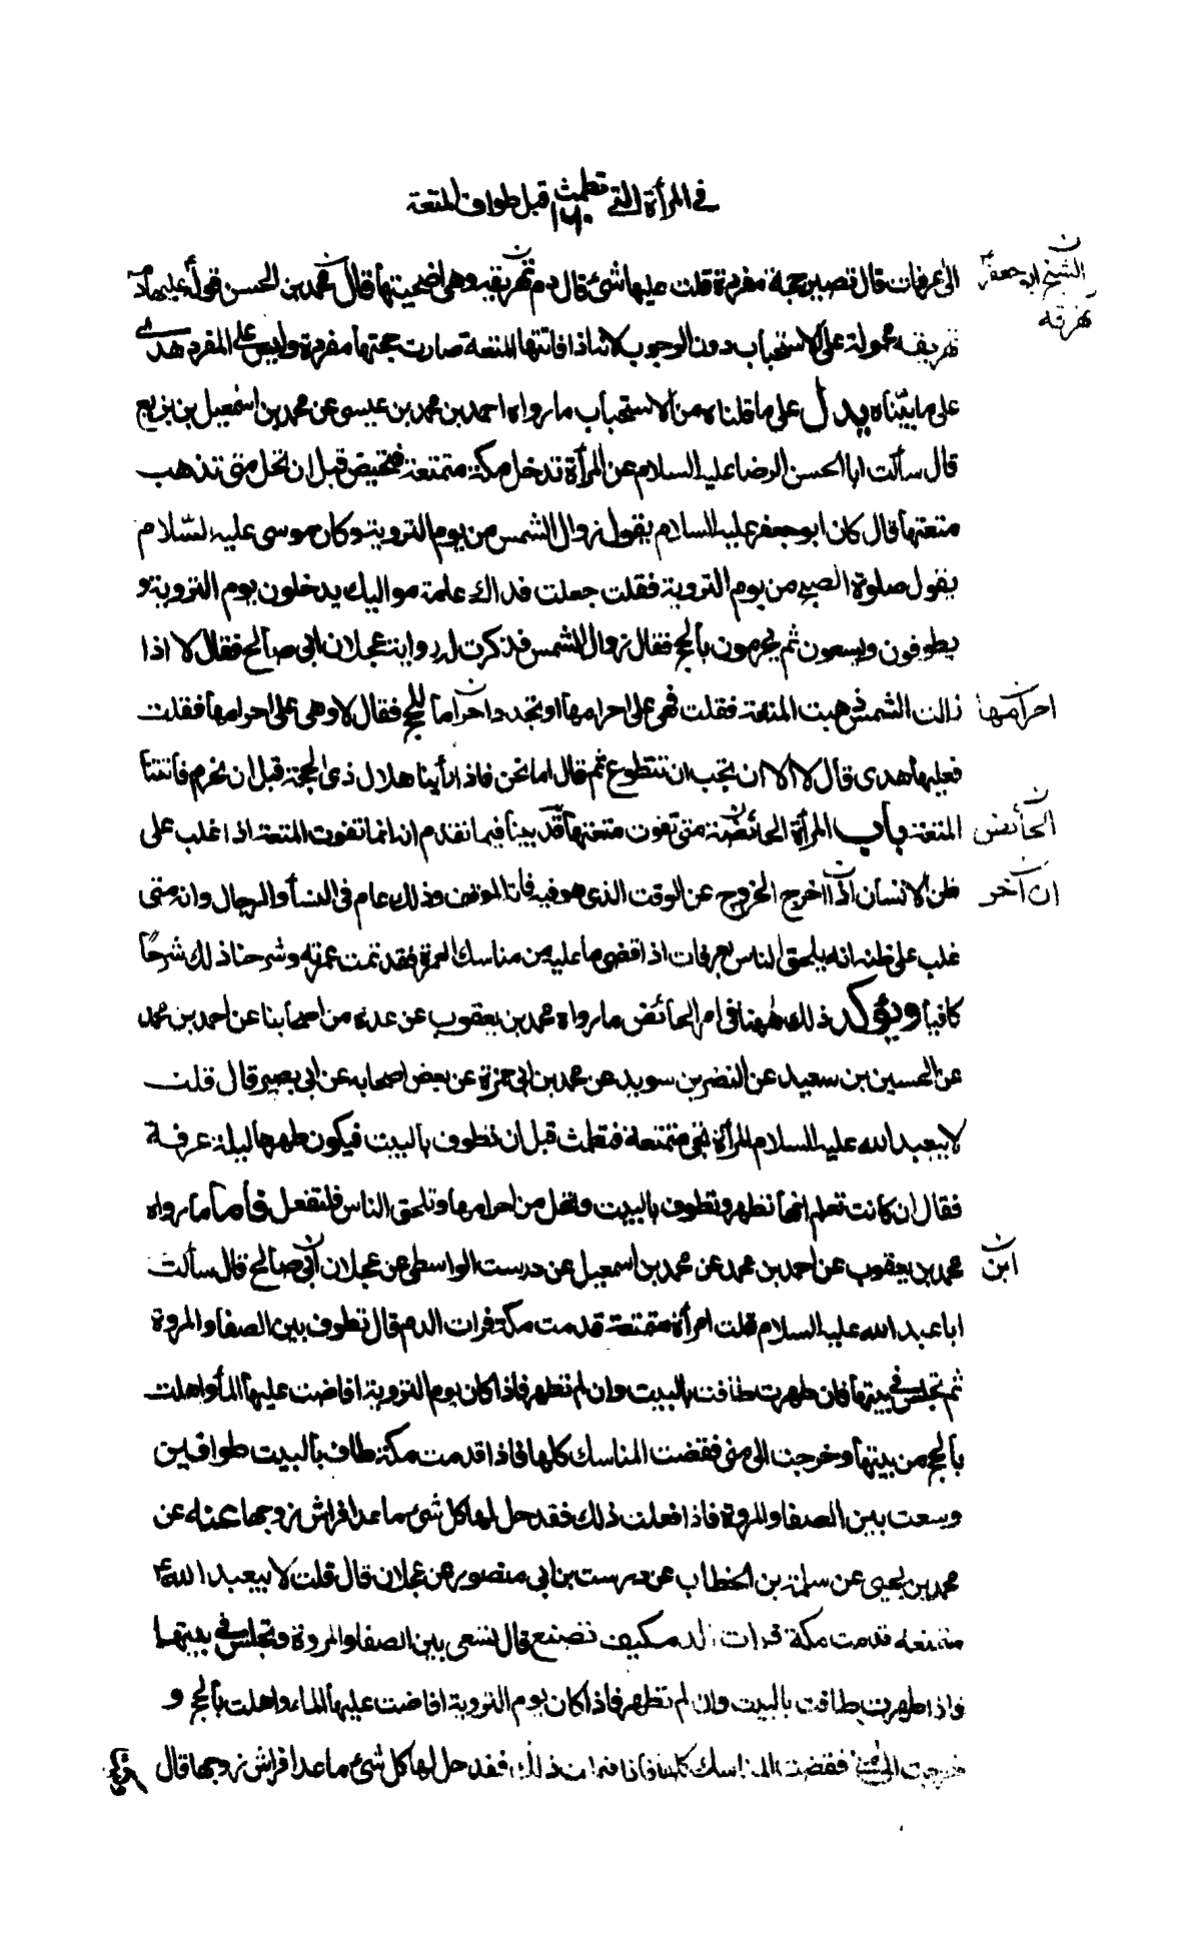 في المرأة التي تطمث قبل طواف المتعة
١٦٠
الى عرفات قال تصير حجة مفردة قلت عليها شئ قال دم تهريقه وهي اضحيتها قال محمد بن الحسن قوله عليها دم
الشيخ ابو جعفر
تهرقه
تهريقه محمولة على الاستحباب دون الوجوب لانه اذا فاتتها المتعة صارت حجتها مفردة وليس على المفرد هدى
على ما بيناه يدل على ما قلناه من الاستحباب ما رواه احمد بن محمد بن عيسى عن محمد بن اسمعيل بن بزيع
قال سألت ابا الحسن الرضا عليه السلام عن المرأة تدخل مكة متمتعة فتحيض قبل ان تحل متى تذهب
متعتها قال كان ابو جعفر عليه السلام يقول زوال الشمس من يوم التروية وكان موسى عليه السلام
يقول صلوة الصبح من يوم التروية فقلت جعلت فداك عامة مواليك يدخلون يوم التروية و
يطوفون ويسعون ثم يحرمون بالحج فقال زوال الشمس فذكرت له رواية عجلان ابى صالح فقال لا اذا
زالت الشمس ذهبت المتعة فقلت فهي على احرامها او تجدد احراما للحج فقال لا وهي على احرامها فقلت
احرامها
فعليها هدى قال لا الا ان تحب ان تتطوع ثم قال اما نحن فاذا رأينا هلال ذى الحجة قبل ان نحرم فاتتنا
المتعة باب المرأة الحائضة متى تفوت متعتها قد بينا فيما تقدم انه انما تفوت المتعة اذا غلب على
الحائض
ظن الانسان اذا اخرج الخروج عن الوقت الذى هو فيه فاته الموقف وذلك عام فى النساء والرجال وانه متى
ان آخر
غلب على ظنه انه يلحق الناس بعرفات اذا قضى ما عليه من مناسك العمرة فقد تمت عمرته وشرحنا ذلك شرحًا
كافيا ويؤكد ذلك ههنا فى امر الحائض ما رواه محمد بن يعقوب عن عدة من اصحابنا عن احمد بن محمد
عن الحسين بن سعيد عن النضر بن سويد عن محمد بن ابى حمزة عن بعض اصحابه عن ابى بصير قال قلت
لابيعبد الله عليه السلام المرأة تجئ متمتعة فتطمث قبل ان تطوف بالبيت فيكون طهرها ليلة عرفة
فقال ان كانت تعلم انها تطهر وتطوف بالبيت وتحل من احرامها وتلحق الناس فلتفعل فأما ما رواه
محمد بن يعقوب عن احمد بن محمد عن محمد بن اسمعيل عن درست الواسطى عن عجلان ابى صالح قال سألت
ابن
ابا عبد الله عليه السلام قلت امرأة متمتعة قدمت مكة فرات الدم قال تطوف بين الصفا والمروة
ثم تجلس فى بيتها فان طهرت طافت بالبيت وان لم تطهر فاذا كان يوم التروية افاضت عليها الماء واهلت
بالحج من بيتها وخرجت الى منى فقضت المناسك كلها فاذا قدمت مكة طاف بالبيت طوافين
وسعت بين الصفا والمروة فاذا فعلت ذلك فقد حل لها كل شئ ما عدا فراش زوجها عنه عن
محمد بن يحيى عن سلمة بن الخطاب عن درست بن ابى منصور عن عجلان قال قلت لابيعبد الله ع
متمتعة قدمت مكة فرات الدم كيف تصنع قال تسعى بين الصفا والمروة وتجلس فى بيتها
فاذا طهرت طافت بالبيت وان لم تطهر فاذا كان يوم التروية افاضت عليها الماء واهلت بالحج و
خرجت الى منى فقضت المناسك كلها فاذا فعلت ذلك فقد حل لها كل شئ ما عدا فراش زوجها قال